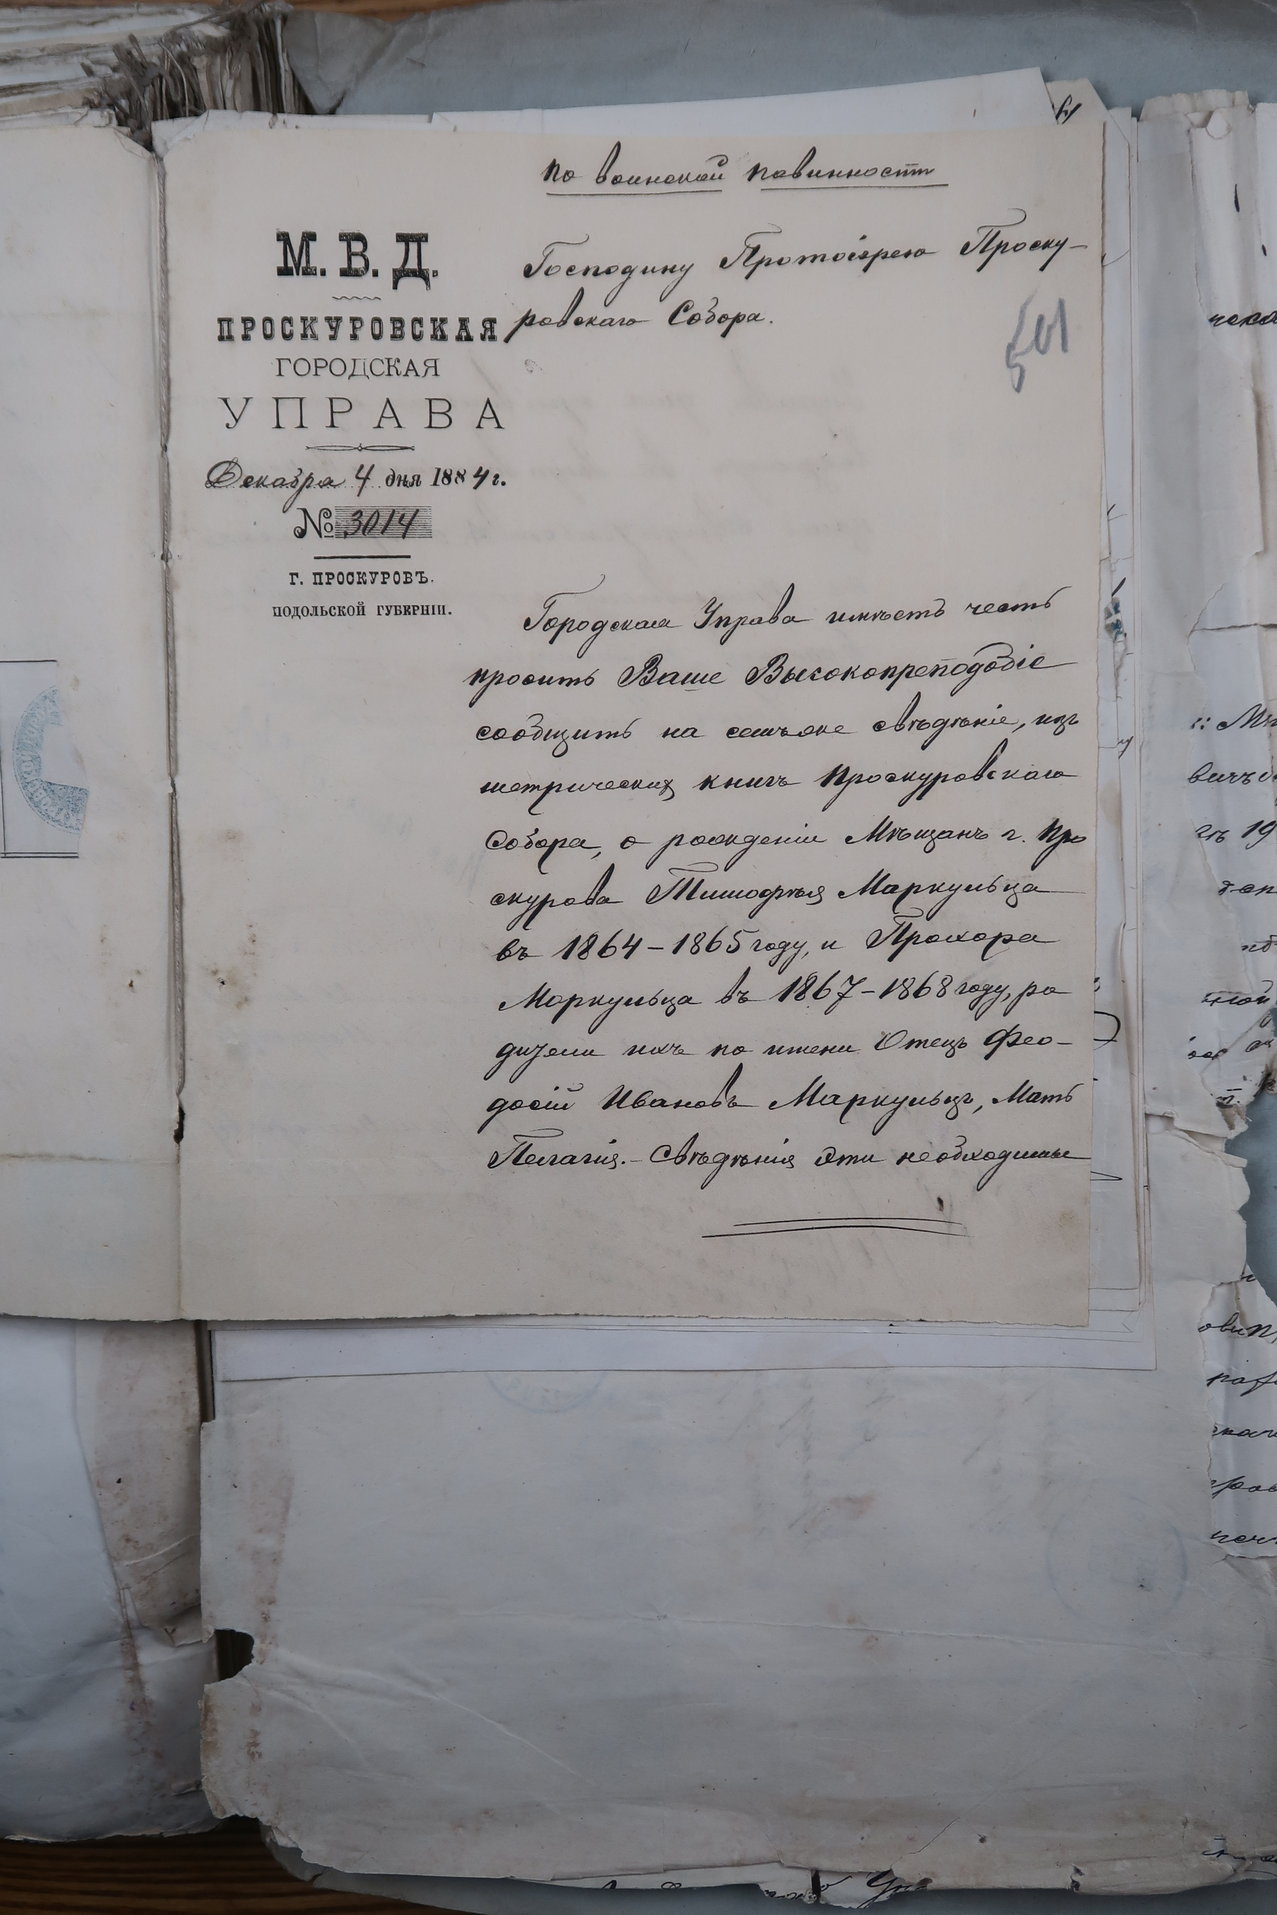 по воинской повинности
М. В. Д.
ПРОСКУРОВСКАЯ
ГОРОДСКАЯ
УПРАВА
Декабря 4 дня 1884 г.
№ 3014
Г. ПРОСКУРОВЪ.
ПОДОЛЬСКОЙ ГУБЕРНІИ.
Господину Протоіерею Проску-
ровскаго Собора.
501
Городская Управа имѣетъ честь
просить Ваше Высокопреподобіе
сообщить на семъ же свѣдѣніе, изъ
метрическихъ книгъ Проскуровскаго
Собора, о рожденіи Мѣщанъ г. Про
скурова Тимофѣя Маркульца
въ 1864-1865 году, и Прохора
Маркульца въ 1867-1868 году, ро
дители ихъ по имени Отецъ Фео-
досій Ивановъ Маркульцъ, Мать
Пелагія. - Свѣдѣнія эти необходимы